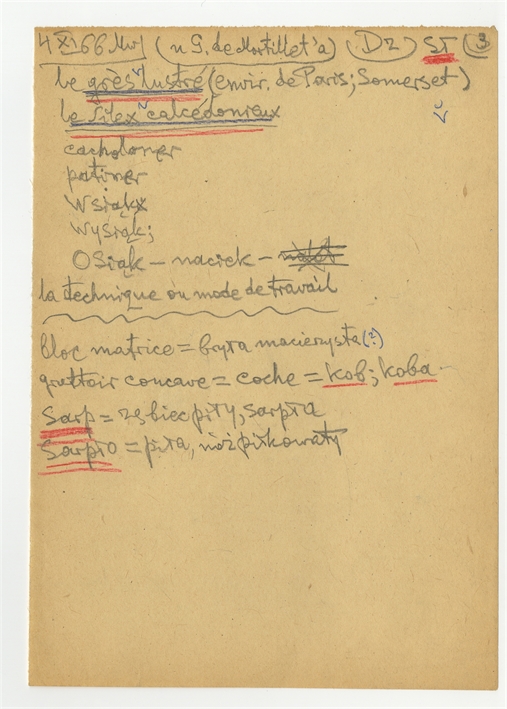 4 XI 66 Mwf (n G. de Mortillet'a) (D2) ST (3)
le grès lustré (envir. de Paris; Somerset)
le silex calcédonieux
cacholoner
patiner
Wsiąkx
Wysiąk;
Osiąk – naciek –
la technique ou mode de travail
bloc matrice = bryła macierzysta (?)
grattoir concave = coche = kob; koba
Sarp = ząbiec piły, sarpła
Sarpło = piła, nóż piłkowaty